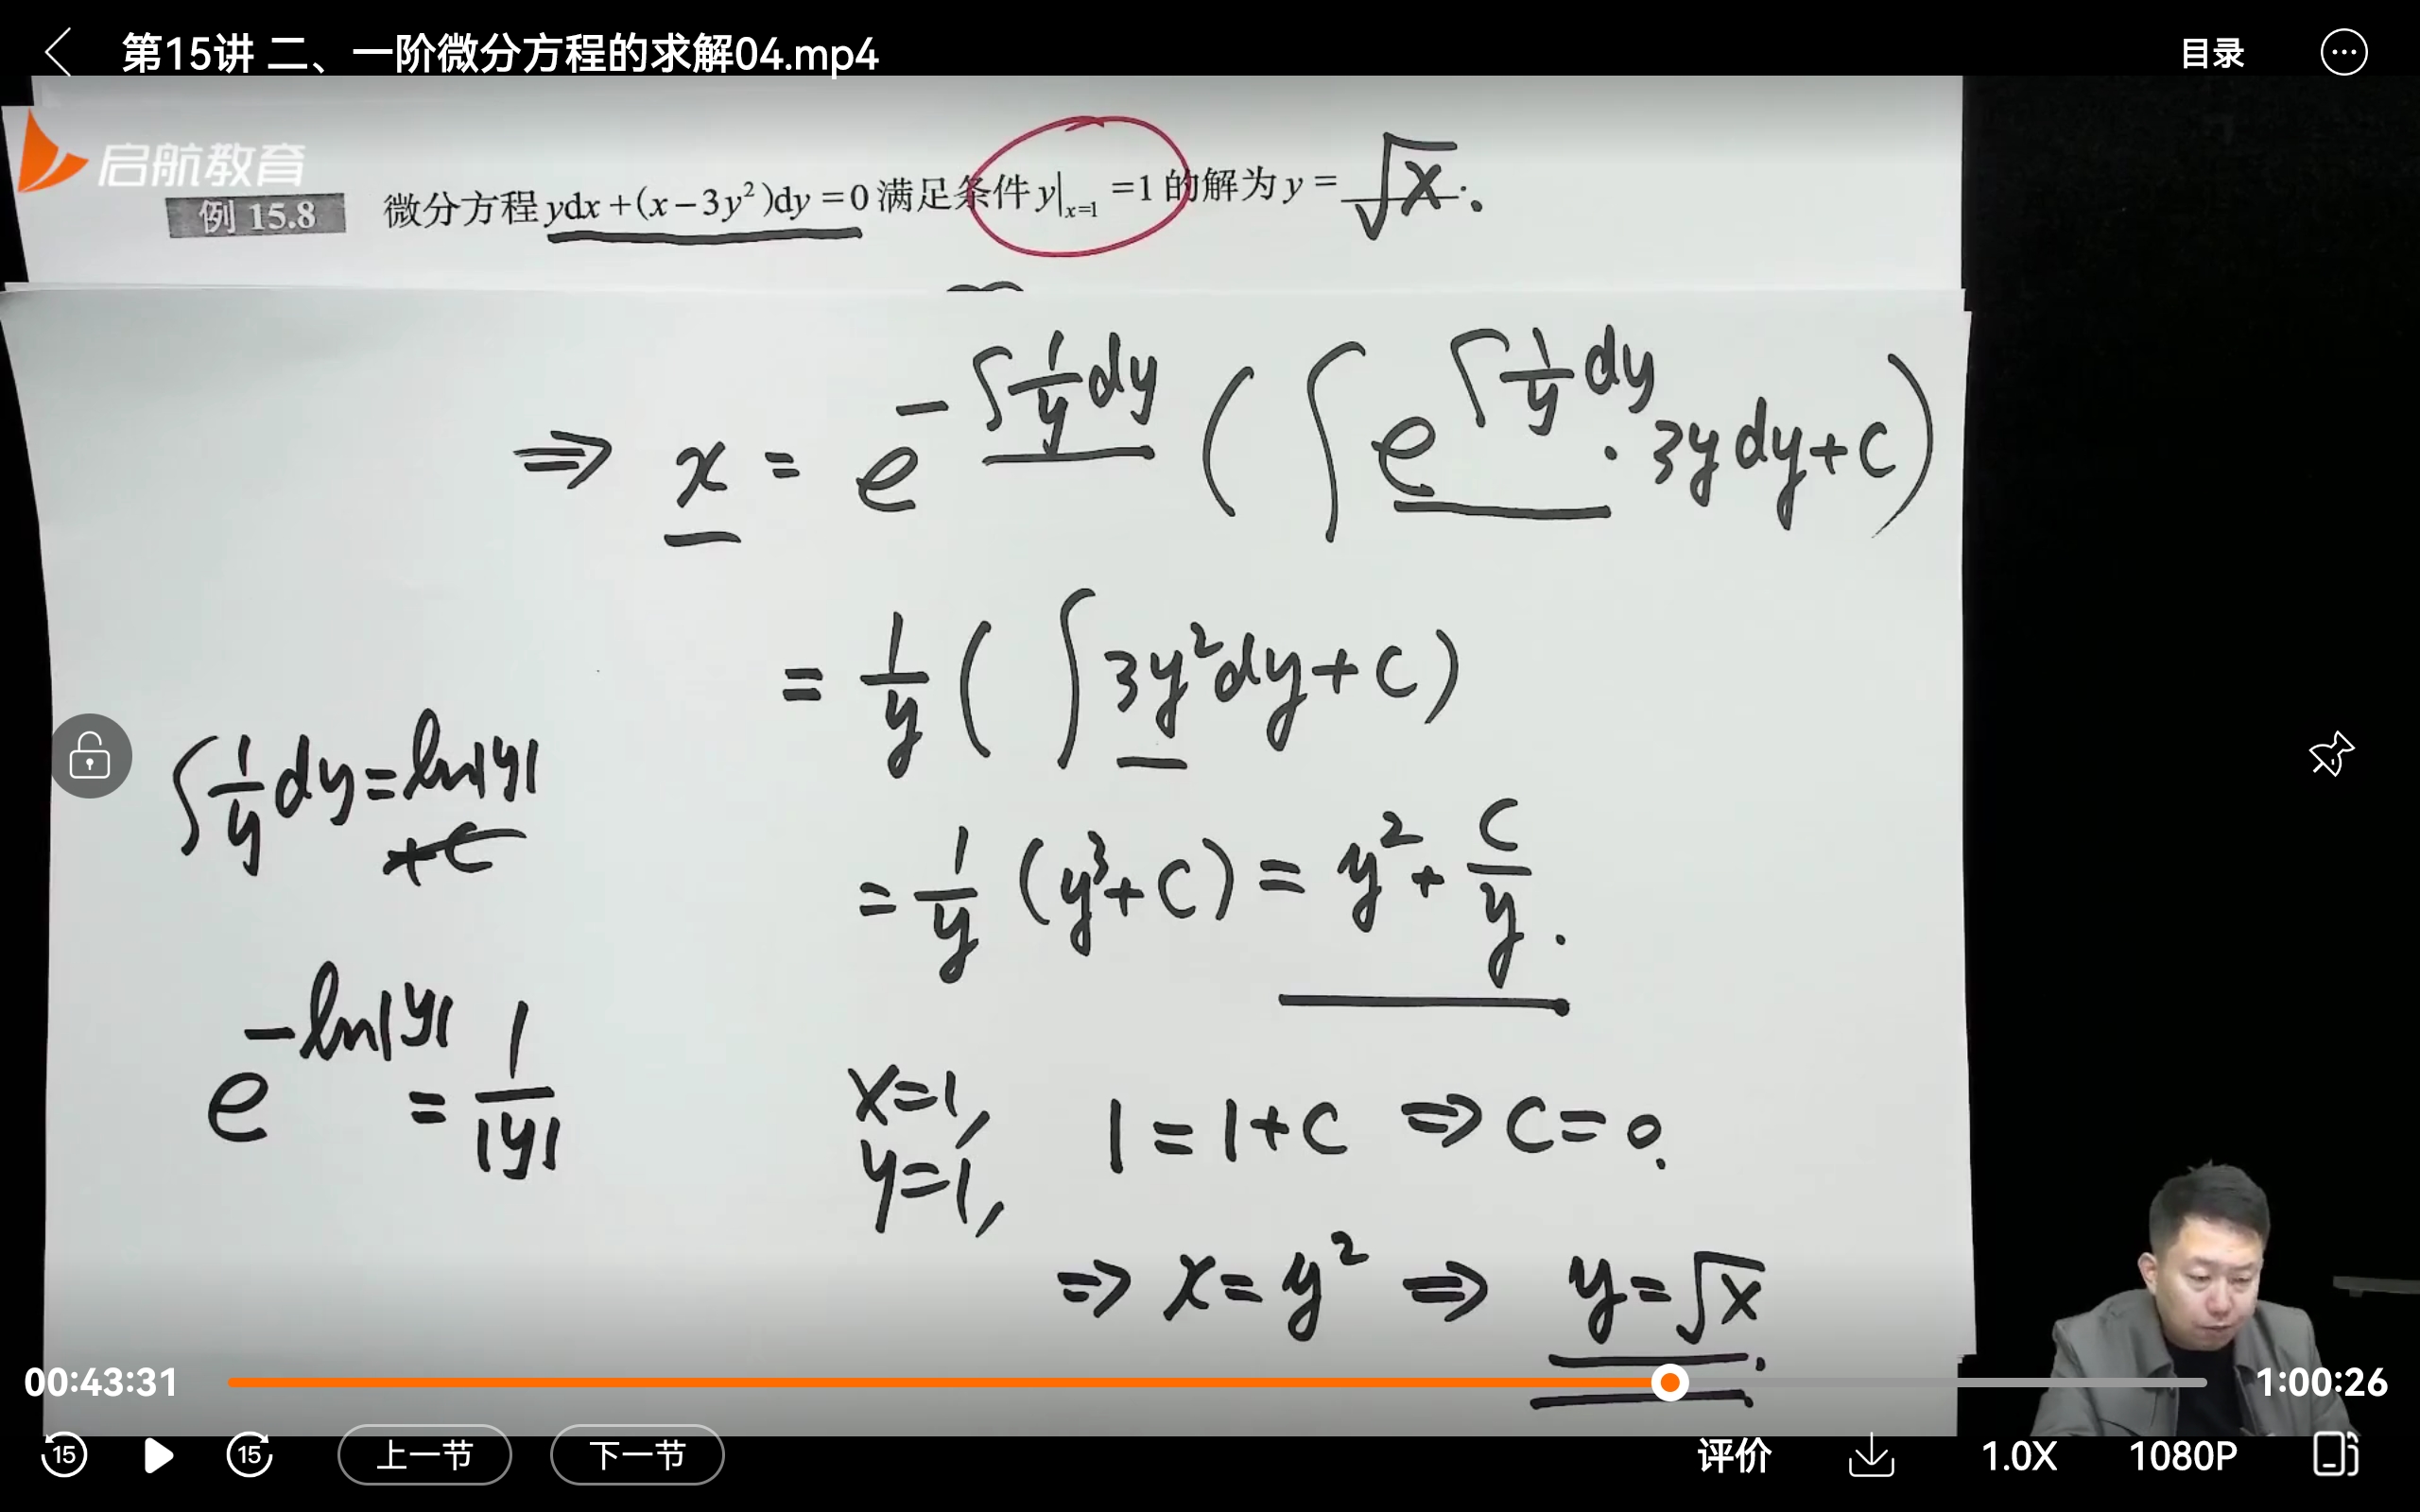 第15讲 二、一阶微分方程的求解04.mp4
目录
启航教育
例 15.8 微分方程ydx+(x−3y²)dy=0满足条件y|ₓ₌₁=1的解为y=√x.
⇒ x = e^(−∫1/y dy) (∫e^(∫1/y dy)·3ydy+C)
= 1/y (∫3y²dy+C)
∫1/y dy=ln|y|
+C
= 1/y (y³+C) = y²+C/y.
e^(−ln|y|) = 1/|y|
x=1,
y=1,
1=1+C ⇒ C=0.
⇒ x=y² ⇒ y=√x.
00:43:31
1:00:26
15
15
上一节
下一节
评价
1.0X
1080P